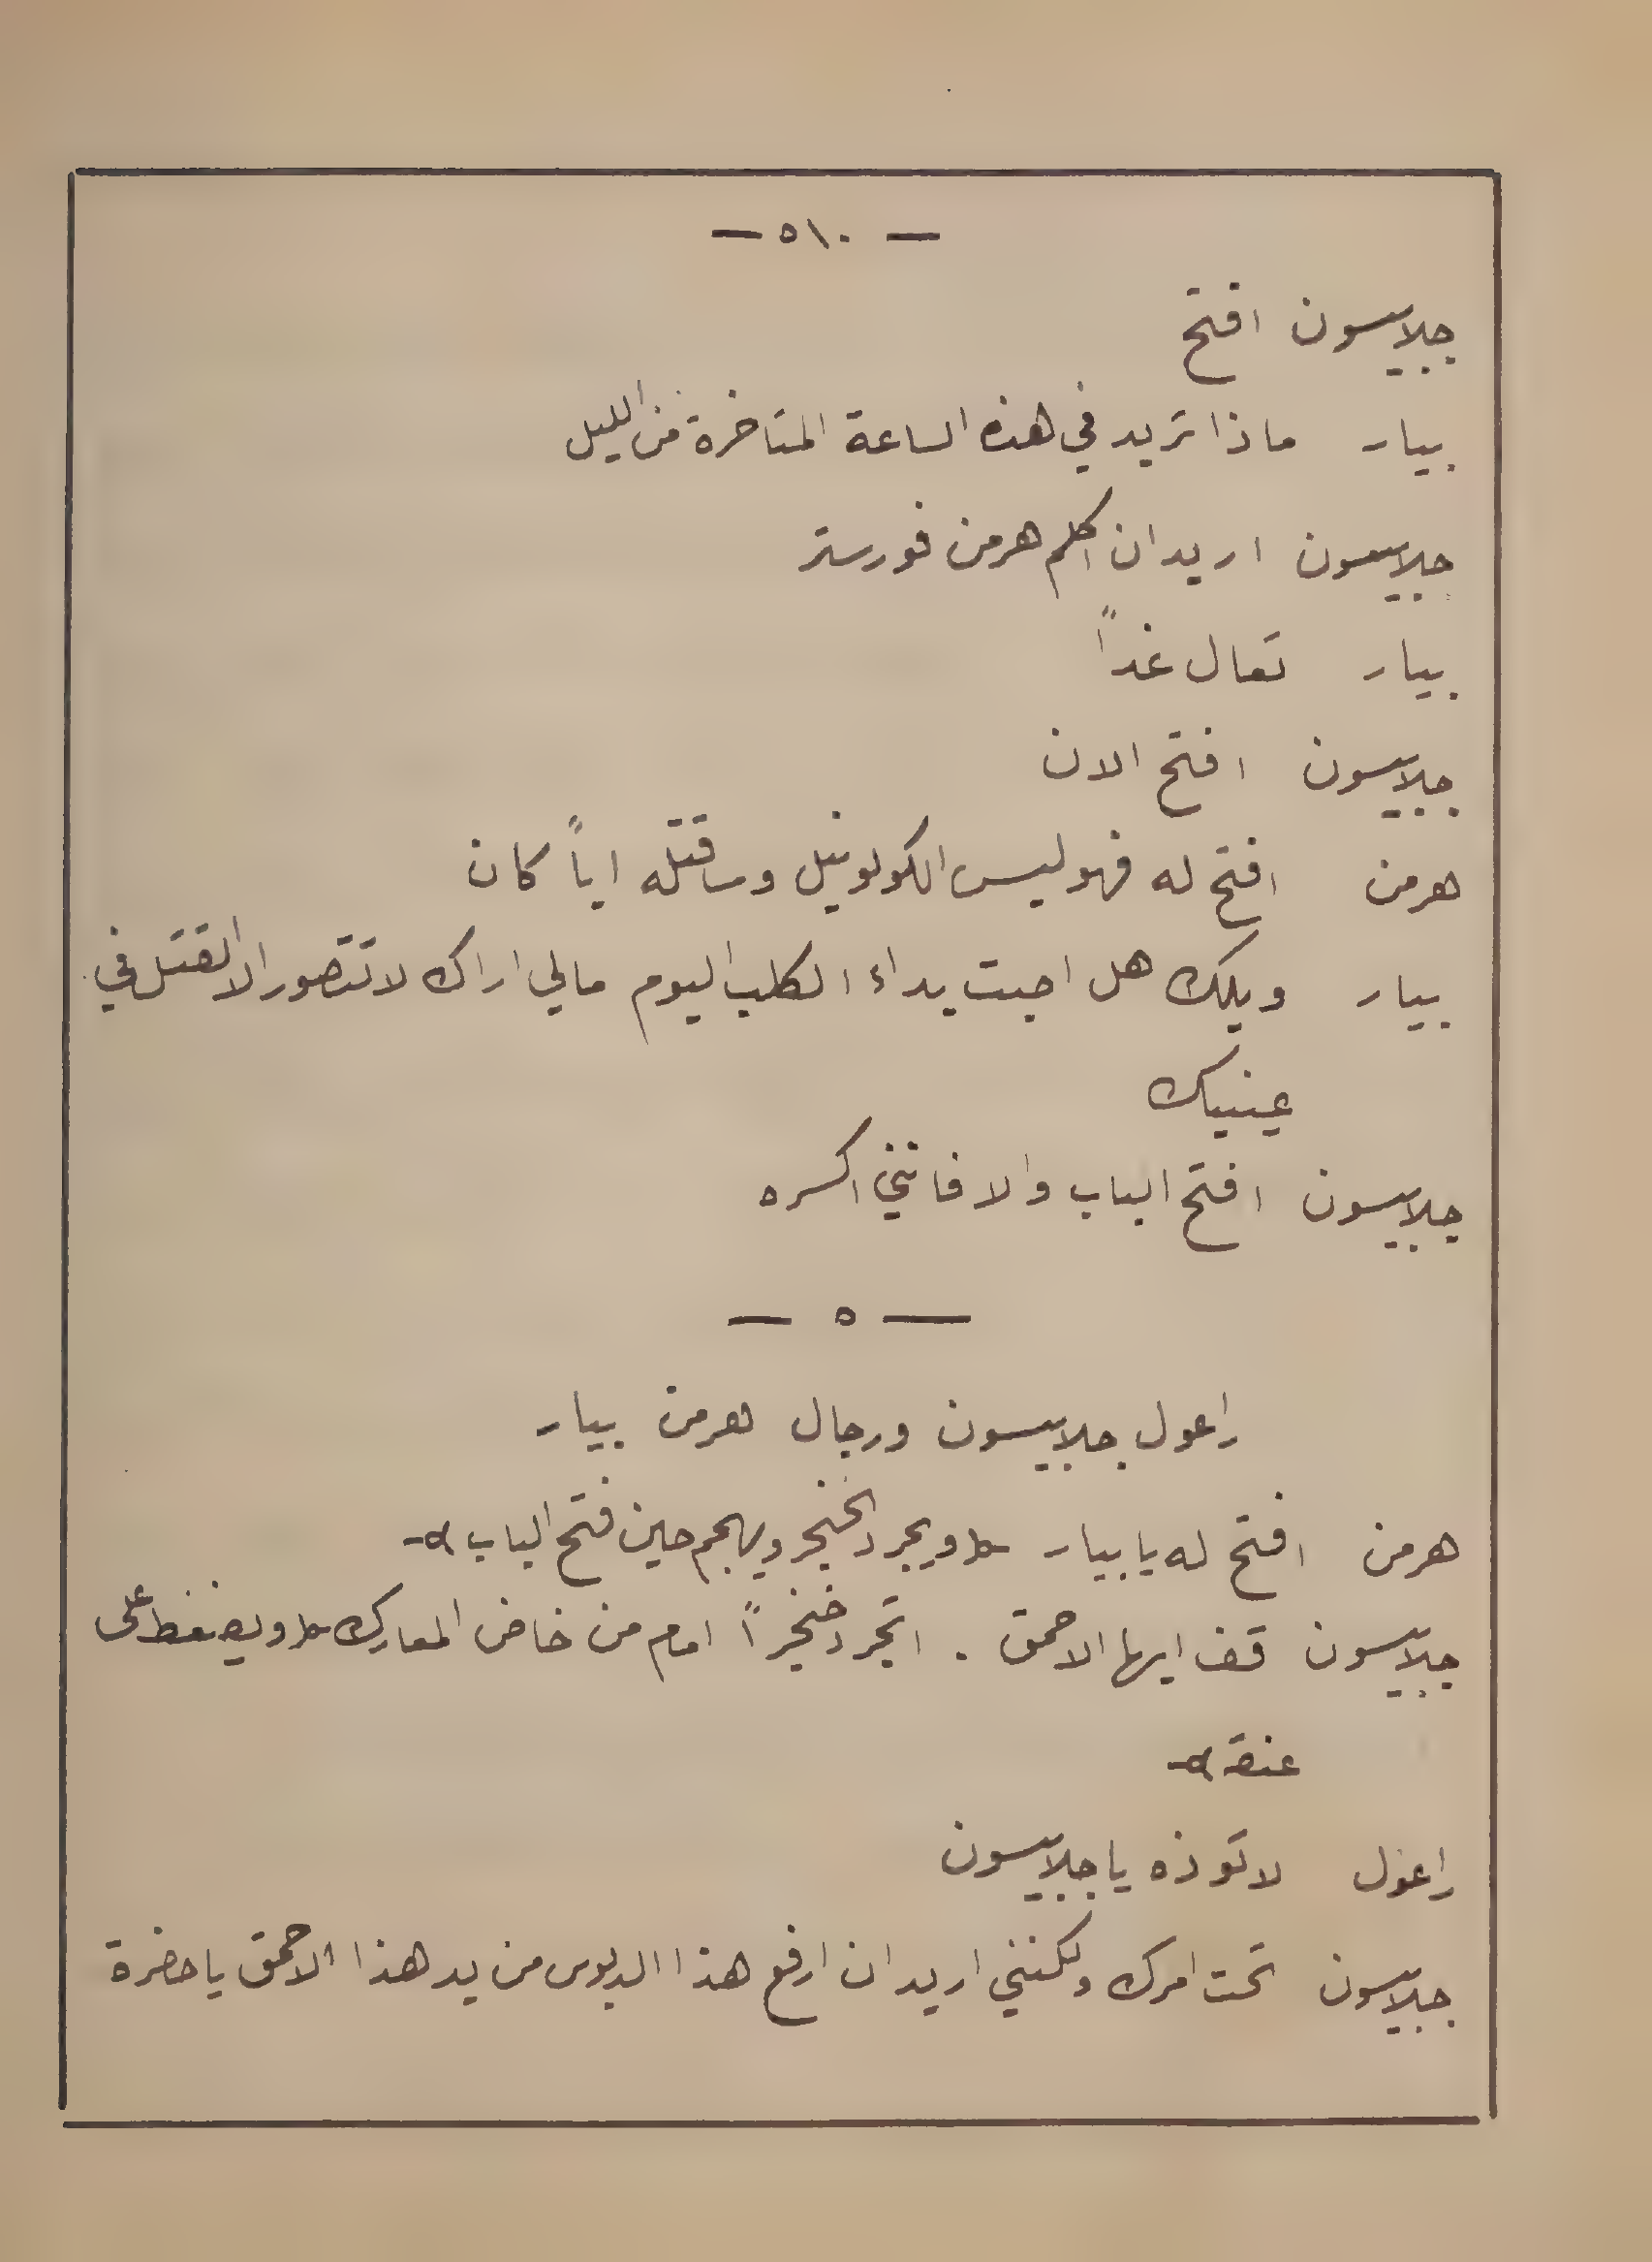 — ٥١٠ —
جلابيسون افتح
بيار ماذا تريد في هذه الساعة المتاخرة من الليل
جلابيسون اريد ان اكلم هرمن فورستر
بيار تعال غداً
جلابيسون افتح الان
هرمن افتح له فهو ليس الكولونيل وساقتله اياً كان
بيار ويلك هل اصبت بداء الكلب اليوم مالي اراك لا تتصور الا القتل في
عينيك
جلابيسون افتح الباب والا فانني اكسره
— ٥ —
راعول جلابيسون ورجال هرمن بيار
هرمن افتح له يا بيار (ويجرد الخنجر ويهجم حين فتح الباب)
جلابيسون قف ايها الاحمق . اتجرد خنجراً امام من خاض المعارك (ويضغط على
عنقه)
راعول لا تؤذه يا جلابيسون
جلابيسون تحت امرك ولكنني اريد ان ارفع هذا الدبوس من يد هذا الاحمق يا حضرة